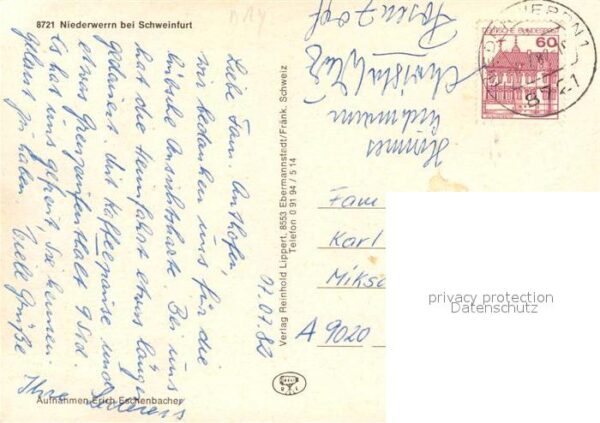 8721 Niederwerrn bei Schweinfurt
Liebe Fam. Anthofer,
wir bedanken uns für die
hübsche Ansichtskarte. Bei uns
hat die Heimfahrt etwas länger
gedauert. Mit Kaffeepause und
etwas Grenzaufenthalt 9 Std.
Es hat uns gefreut Sie kennen
gelernt zu haben
Viele Grüße
Ihre
07.07.82
Aufnahmen Erich Eschenbacher
Verlag Reinhold Lippert, 8553 Ebermannstadt/Fränk. Schweiz
Telefon 0 91 94 / 5 14
Hannes
Christa
DEUTSCHE BUNDESPOST
60
8721
Fam
Karl
A 9020
privacy protection
Datenschutz